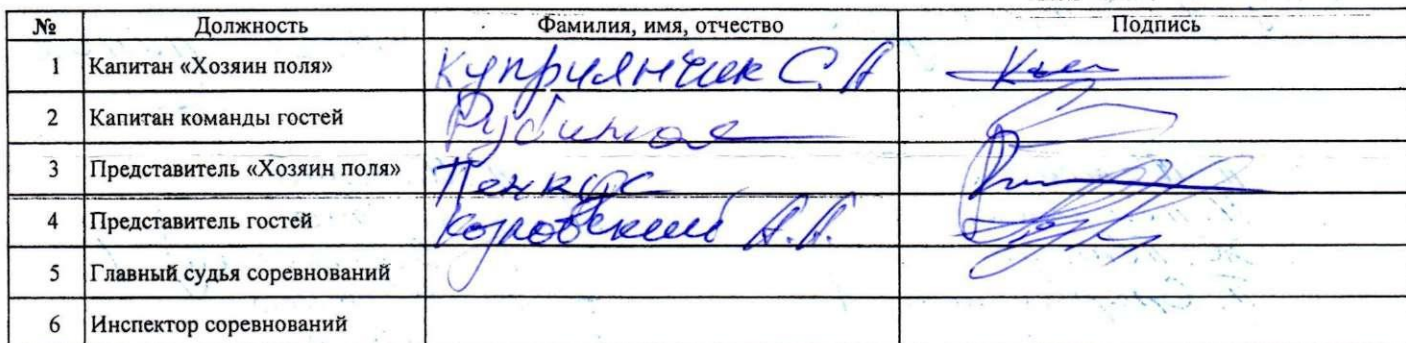 № Должность Фамилия, имя, отчество Подпись
1 Капитан «Хозяин поля» Куприянчик С.А
2 Капитан команды гостей
3 Представитель «Хозяин поля» Пенкус
4 Представитель гостей А.А.
5 Главный судья соревнований
6 Инспектор соревнований